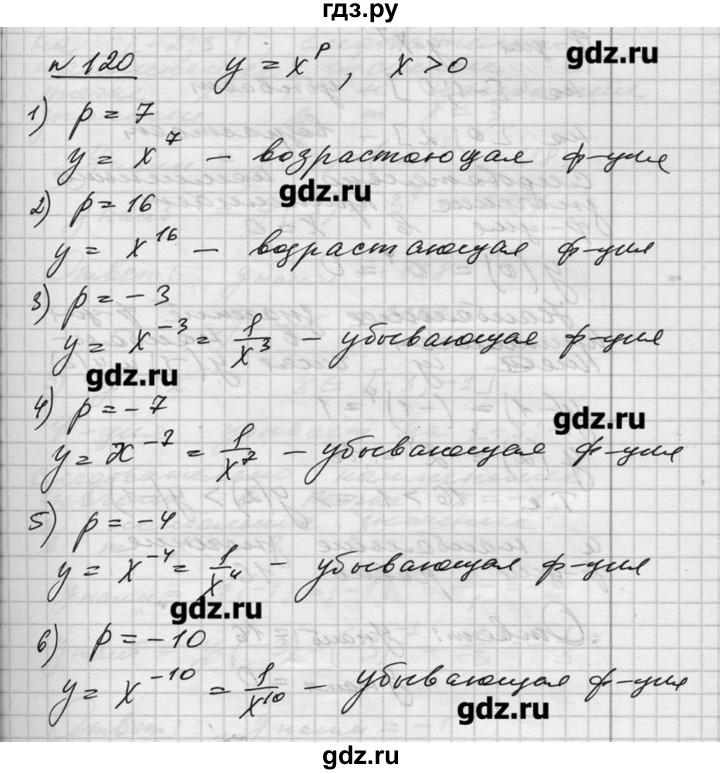 гдз.ру
gdz.ru
№ 120 y = x^p, x > 0
1) p = 7
y = x^7 – возрастающая ф-ция
gdz.ru
2) p = 16
y = x^16 – возрастающая ф-ция
3) p = – 3
y = x^–3 = 1/x^3 – убывающая ф-ция
gdz.ru
4) p = – 7
gdz.ru
y = x^–7 = 1/x^7 – убывающая ф-ция
5) p = – 4
y = x^–4 = 1/x^4 – убывающая ф-ция
gdz.ru
6) p = – 10
y = x^–10 = 1/x^10 – убывающая ф-ция
gdz.ru
gdz.ru